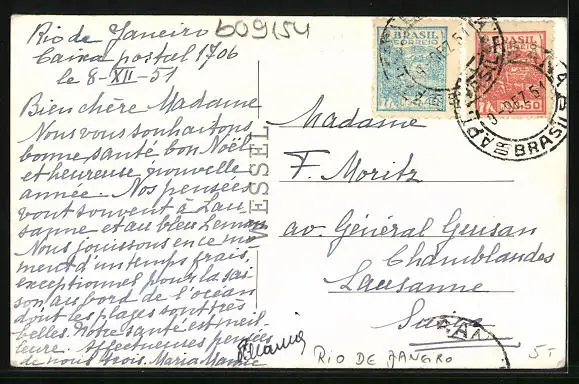 Rio de Janeiro
Caixa postal 1706
le 8-XII-51
Bien chère Madame
Nous vous souhaitons
bonne santé, bon Noël
et heureuse nouvelle
année. Nos pensées
vont souvent à Lau-
sanne et au bleu Leman
Nous jouissons en ce mo-
ment d'un temps frais,
exceptionnel pour la sai-
son au bord de l'océan
dont les plages sont très
belles. Notre santé est meil-
leure. Affectueuses pensées
de nous trois. Maria
609/54
WESSEL
BRASIL
CORREIO
BRASIL
CORREIO
0.50
BRASIL
Madame
F. Moritz
av. Général Guisan
Chamblandes
Lausanne
Suisse
RIO DE JANGRO
5-